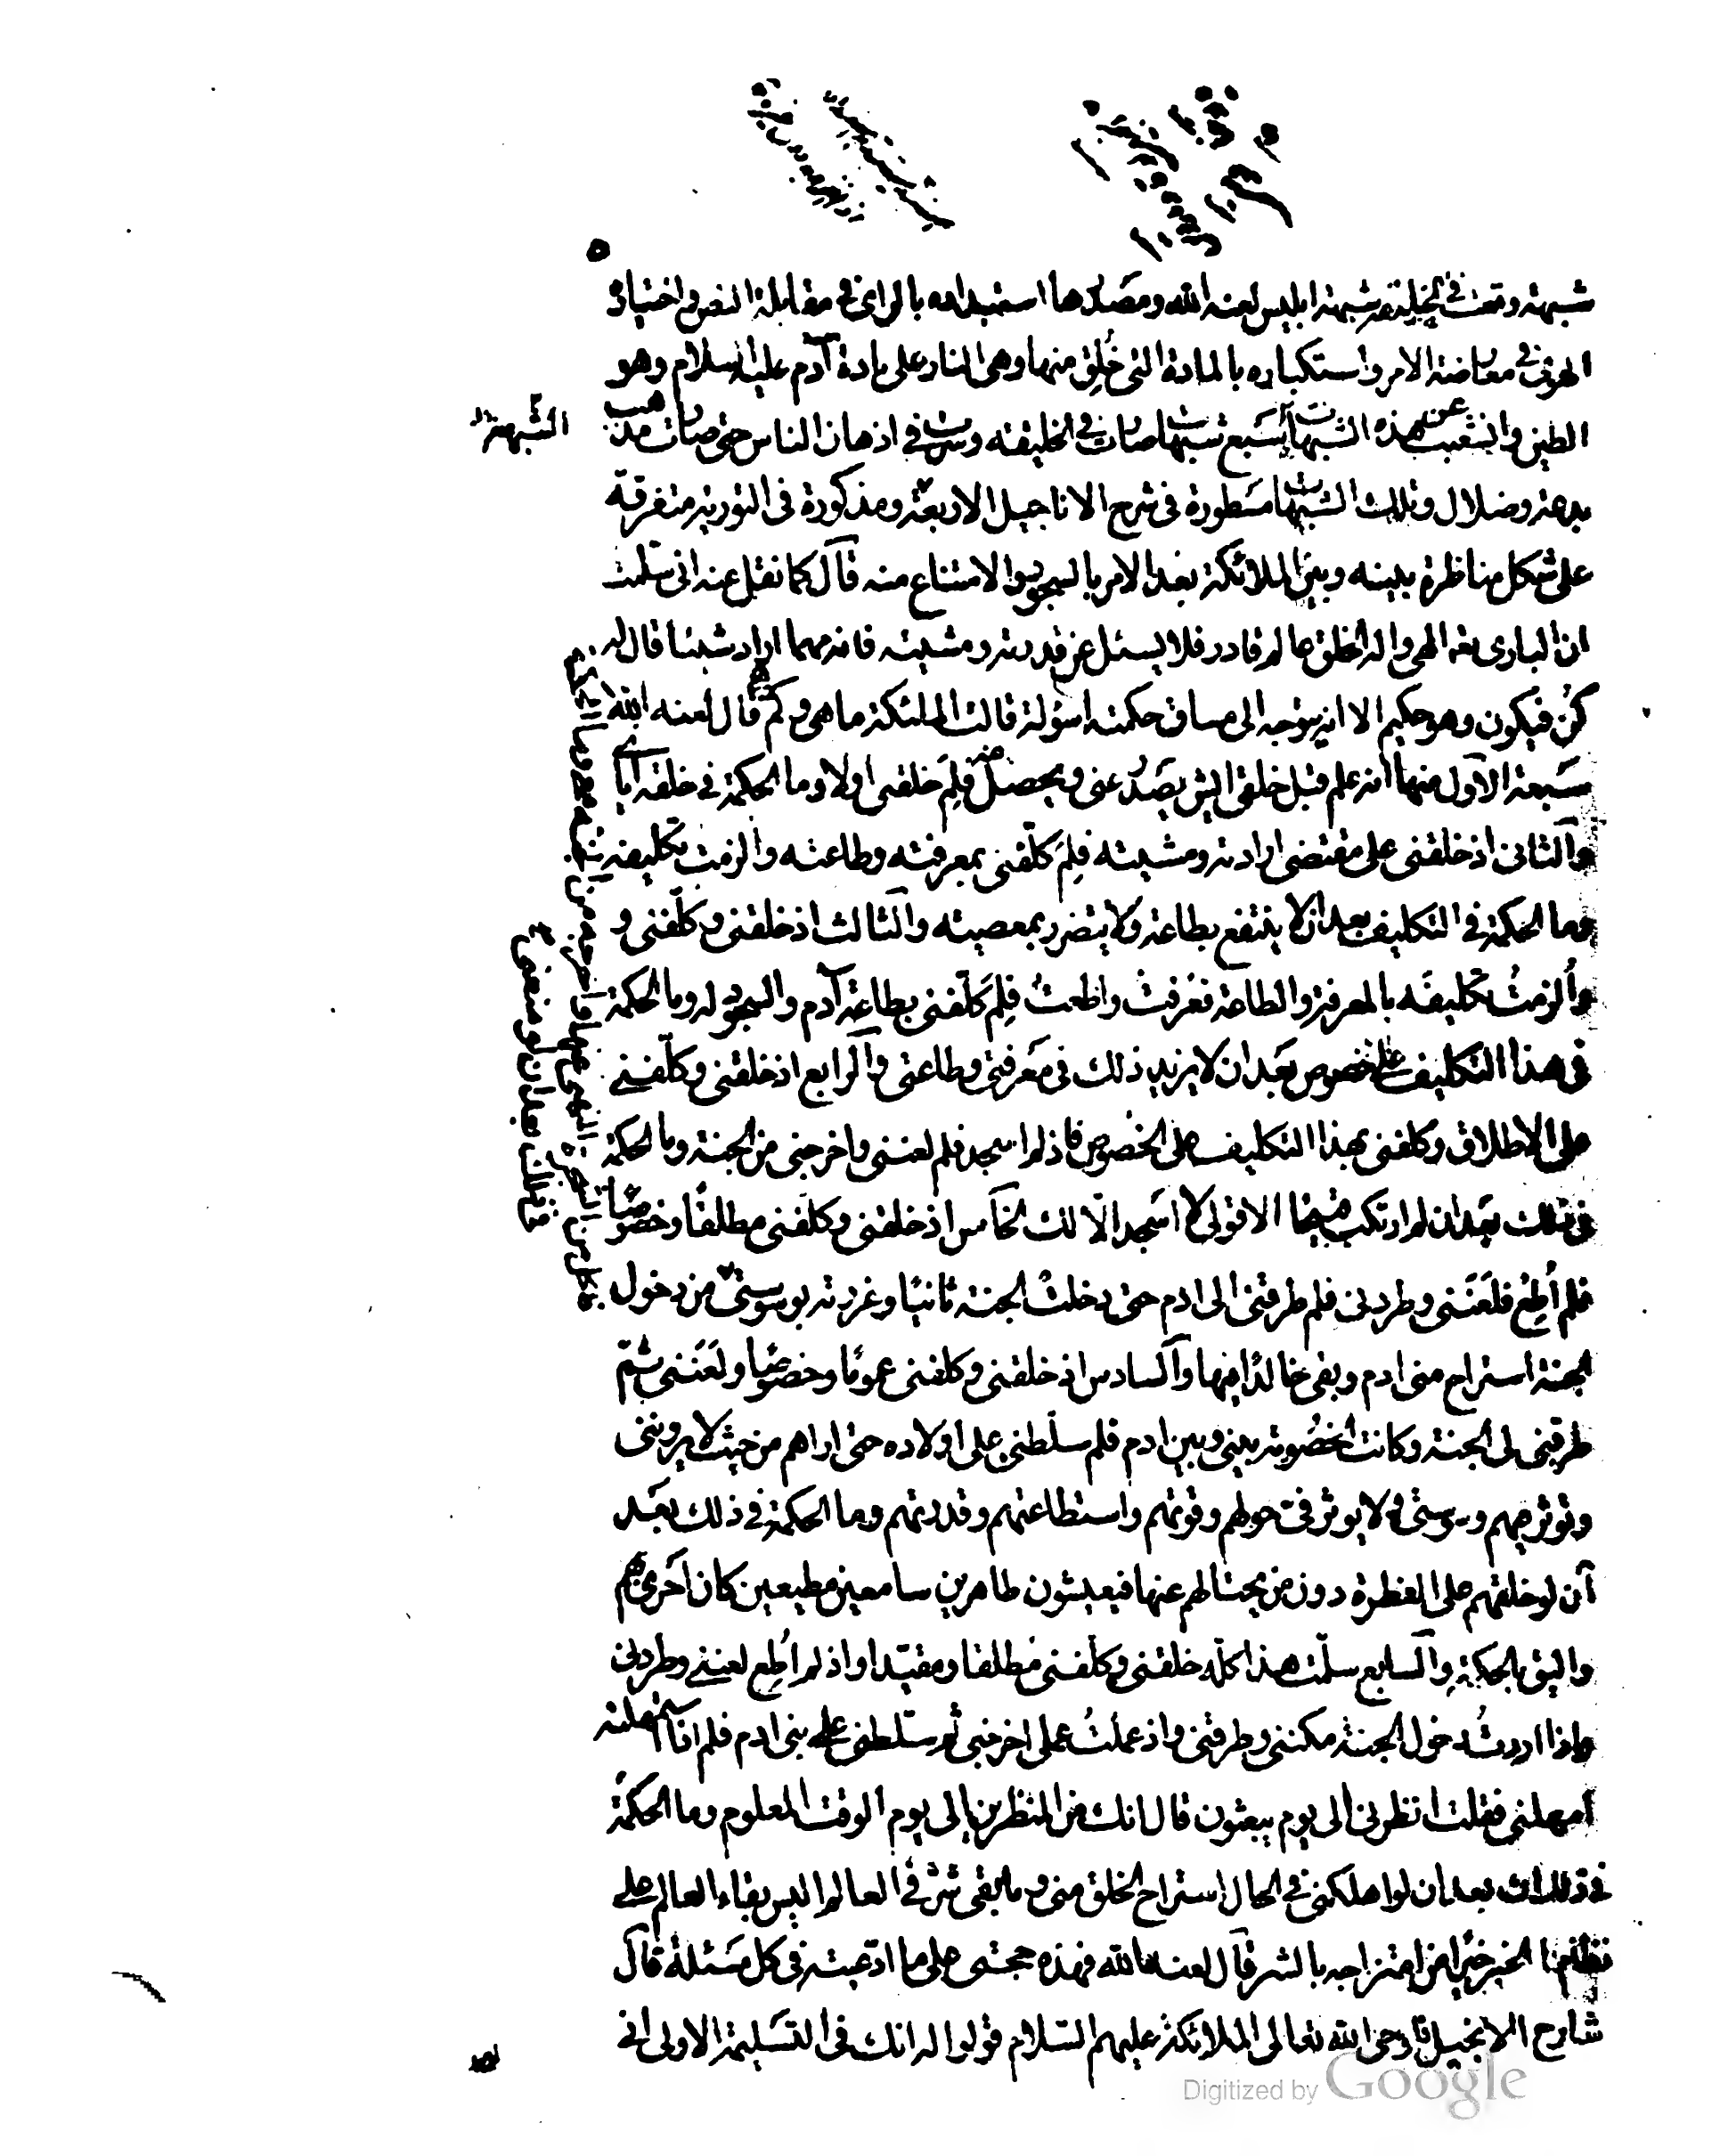 شبهة وقعت في الخليقة شبهة ابليس لعنه الله ومصدرها استبداده بالراى فى مقابلة النص واختياره
الهوى فى معارضة الامر واستكباره بالمادة التى خُلِق منها وهى النار على مادة آدم عليه السلام وهو
الطين وانشعبت عن هذه الشبهات سبع شبهات صارت فى الخليقه وسرت فى اذهان الناس حتى صارت مذهب
الشبهة
بدعة وضلال وتلك الشبهات مسطورة فى شرح الاناجيل الاربعة ومذكورة فى التورية متفرقة
على شكل مناظرة بينه وبين الملائكة بعد الامر بالسجود والامتناع منه قال كما نقل عنه انى سلمت
ان البارى تعه الهى واله الخلق عالم قادر فلا يسئل عن قدرته ومشيته فانه مهما اراد شيئا قال له
كُن فيكون وهو حكيم الا انه يتوجه الى مساق حكمته اسؤلة قالت الملئكة ما هى وكم قال لعنه الله
سبعة الاول منها انه علم قبل خلقى ايش يصدر عنى ويحصل منى فلِمَ خلقنى اولا وما الحكمة فى خلقه اياى
والثانى اذ خلقنى على مقتضى ارادته ومشيته فلِمَ كلّفنى بمعرفته وطاعته والزمت تكليفه
وما الحكمة فى التكليف بعد ان لا ينتفع بطاعة ولا يتضرر بمعصيته والثالث اذ خلقنى وكلّفنى و
والزمتُ تكليفَه بالمعرفة والطاعة فعرفتُ واطعتُ فلِمَ كلّفنى بطاعة آدم والسجود له وما الحكمة
فى هذا التكليف على الخصوص بعد ان لا يزيد ذلك فى معرفتى وطاعتى والرابع اذ خلقنى وكلّفنى
على الاطلاق وكلفنى بهذا التكليف على الخصوص فاذ لم اسجد فلم لعننى واخرجنى من الجنة وما الحكمة
فى ذلك بعد ان لم ارتكب قبيحا الا قولى لا اسجد الّا لك الخامس اذ خلقنى وكلّفنى مطلقًا وخصوصًا
فلم أُطِع فلَعَنَنى وطردنى فلم طرقنى الى ادم حتى دخلتُ الجنة ثانيًا وغررته بوسوستى من دخول
الجنة استراح منى ادم وبقى خالدًا فيها والسادس اذ خلقنى وكلفنى عمومًا وخصوصًا ولَعَننى ثمّ
طرقنى الى الجنة وكانت الخصُومة بينى وبين ادم فلم سلّطنى على اولاده حتى اراهم من حيث لا يروننى
وتوثر فيهم وسوستى ولا يوثر فىّ حولهم وقوتهم واستطاعتهم وقدرتهم وما الحكمة فى ذلك بعَد
أن لو خلقهم على الفطرة دون من يحتالهم عنها فيعيشون طاهرين سامعين مطيعين كان احَرى بهم
واليق بالحكمة والسابع سلّمت هذا كلّه خلقنى وكلّفنى مُطلقا ومقيّدا واذ لم اُطِع لعننى وطردنى
واذا اردتُ دخول الجنة مكننى وطرقنى واذ عملتُ عملى اخرجنى ثم سلّطنى على بنى ادم فلم اذا استمهلته
امهلنى فقلت انظرنى الى يوم يبعثون قال انك من المنظرين الى يوم الوقت المعلوم وما الحكمة
فى ذلك بعد ان لو اهلكنى فى الحال استراح الخلق منى وما بقى شرّ فى العالم اليس بقاء العالم على
نظام الخير خيرًا من امتزاجه بالشر قال لعنه الله فهذه حجتى على ما ادّعيته فى كل مسَئلة قال
شارح الانجيل فاوحى الله تعالى الى الملائكة عليهم السّلام قولوا له انك فى التسَليمة الاولى انى
Digitized by Google